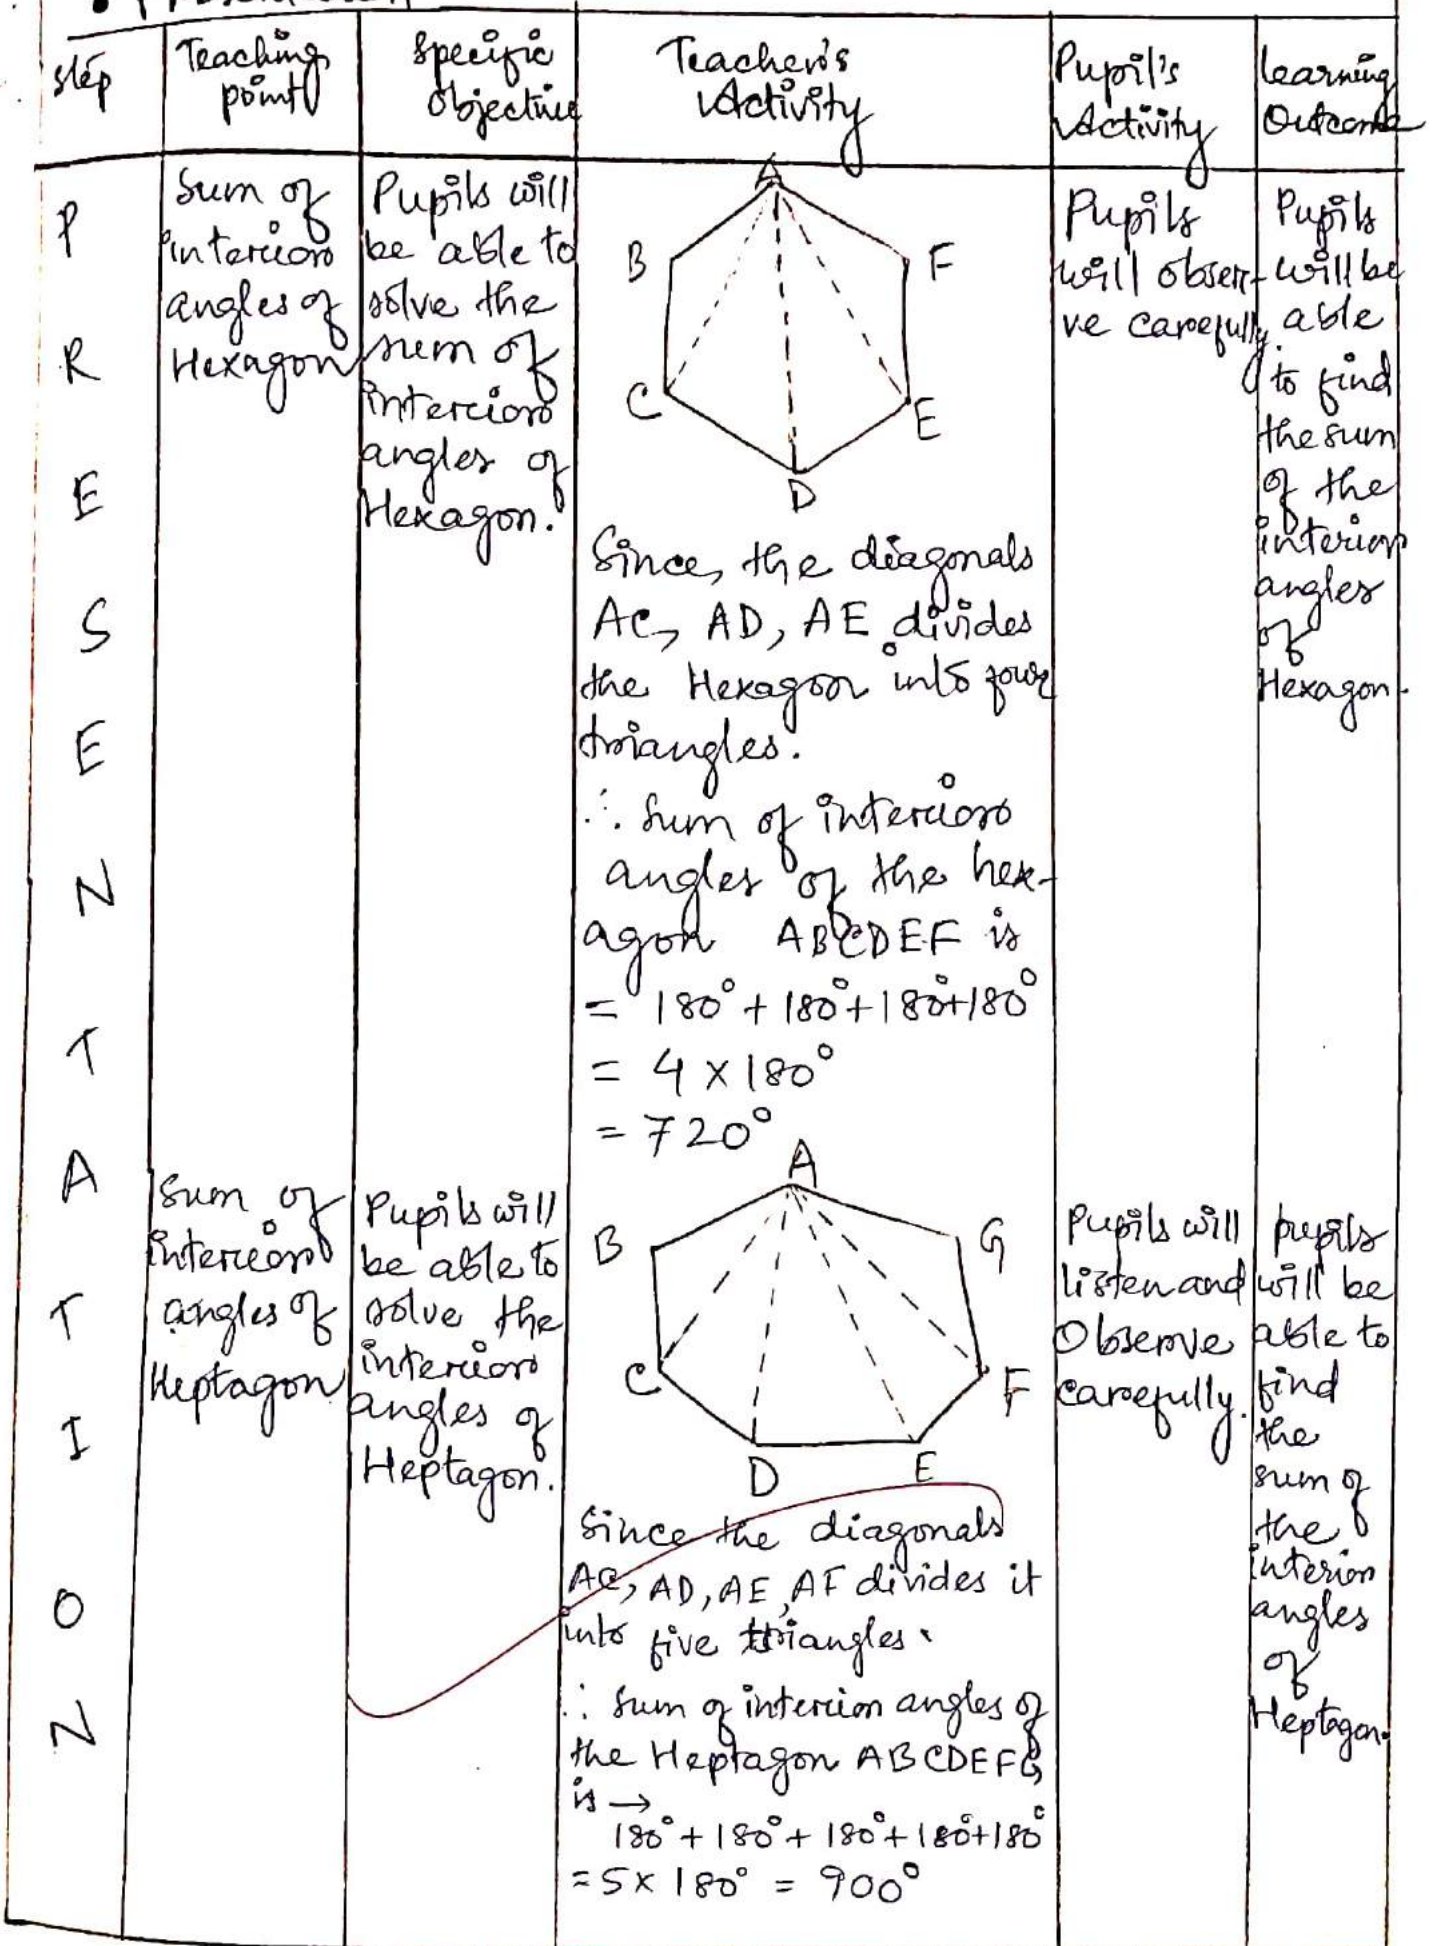 Step
Teaching
point
Specific
Objective
Teacher's
Activity
Pupil's
Activity
Learning
Outcome
P
R
E
S
E
N
T
A
T
I
O
N
Sum of
interior
angles of
Hexagon
Pupils will
be able to
solve the
sum of
interior
angles of
Hexagon.
A
B
F
C
E
D
Since, the diagonals
AC, AD, AE divides
the Hexagon into four
triangles.
∴ Sum of interior
angles of the hex-
agon ABCDEF is
= 180° + 180° + 180° + 180°
= 4 × 180°
= 720°
Pupils
will obser-
ve carefully.
Pupils
will be
able
to find
the sum
of the
interior
angles
of
Hexagon.
Sum of
interior
angles of
Heptagon
Pupils will
be able to
solve the
interior
angles of
Heptagon.
A
B
G
C
F
D
E
Since the diagonals
AC, AD, AE, AF divides it
into five triangles.
∴ Sum of interior angles of
the Heptagon ABCDEFG
is →
180° + 180° + 180° + 180° + 180°
= 5 × 180° = 900°
Pupils will
listen and
Observe
carefully.
pupils
will be
able to
find
the
sum of
the
interior
angles
of
Heptagon.